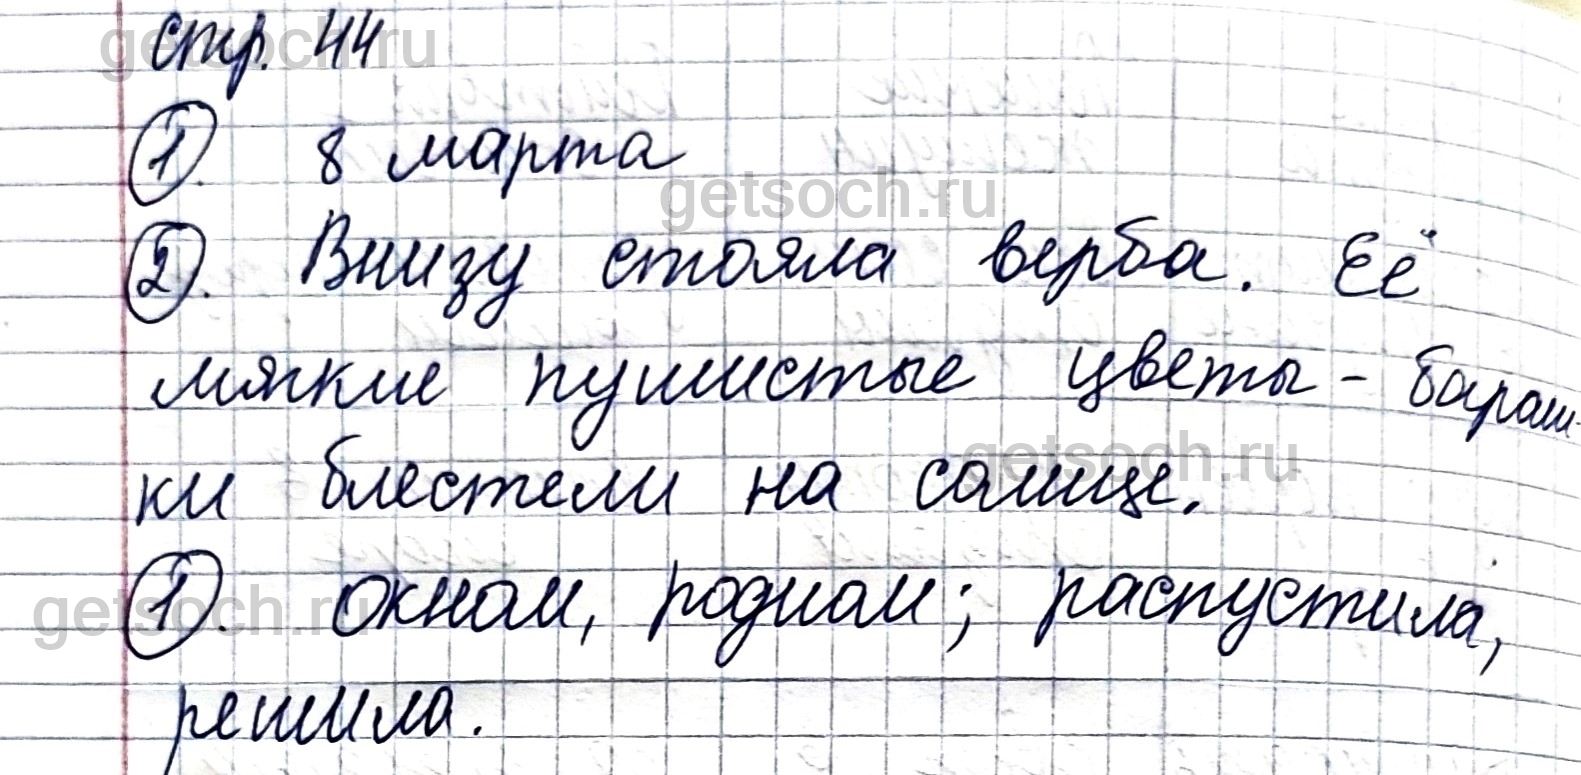 стр. 44
1. 8 марта
2. Внизу стояла верба. Её
мягкие пушистые цветы - бараш-
ки блестели на солнце.
1. окном, родном; распустила,
решила.
getsoch.ru
getsoch.ru
getsoch.ru
getsoch.ru